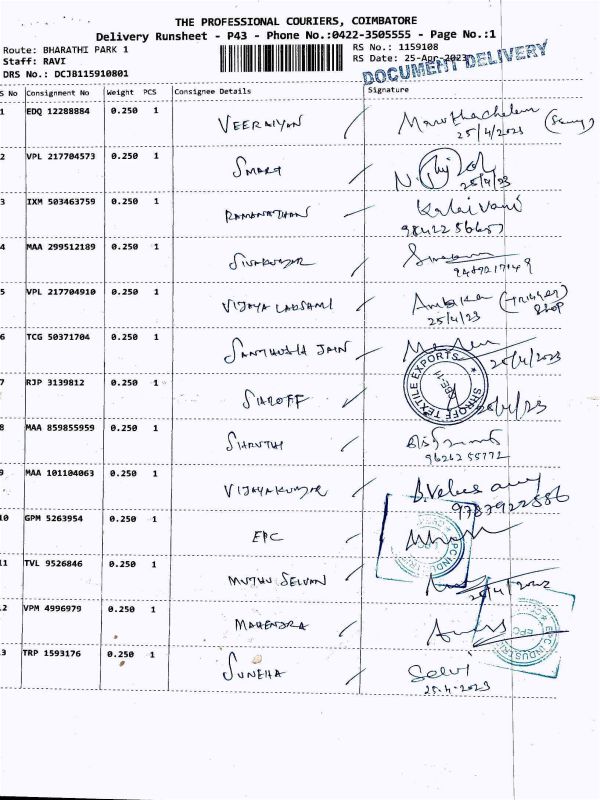 THE PROFESSIONAL COURIERS, COIMBATORE
Delivery Runsheet - P43 - Phone No.:0422-3505555 - Page No.:1
Route: BHARATHI PARK 1
RS No.: 1159108
Staff: RAVI
RS Date: 25-Apr-2023
DRS No.: DCJB115910801
DOCUMENT DELIVERY
S No Consignment No Weight PCS Consignee Details Signature
1 EDQ 12288884 0.250 1 VEERAIYAN
25/4/2023
2 VPL 217704573 0.250 1 SMART
25/4/23
3 IXM 503463759 0.250 1 RAMANATHAN Kalaivani
4 MAA 299512189 0.250 1 SIVAKUMAR
5 VPL 217704910 0.250 1 VIJAYA LAKSHMI Ambika
25/4/23
6 TCG 50371704 0.250 1 SANTHOSH JAIN
25/4/2023
7 RJP 3139812 0.250 1 SHROFF
SHROFF TEXTILE EXPORTS
25/4/23
8 MAA 859855959 0.250 1 SHRUTHI
9626255772
9 MAA 101104063 0.250 1 VIJAYAKUMAR
9787922586
10 GPM 5263954 0.250 1 EPC
11 TVL 9526846 0.250 1 MUTHU SELVAN
12 VPM 4996979 0.250 1 MAHENDRA
EPC INDUSTRI
EPC
13 TRP 1593176 0.250 1 SUNEHA Selvi
25.4.2023